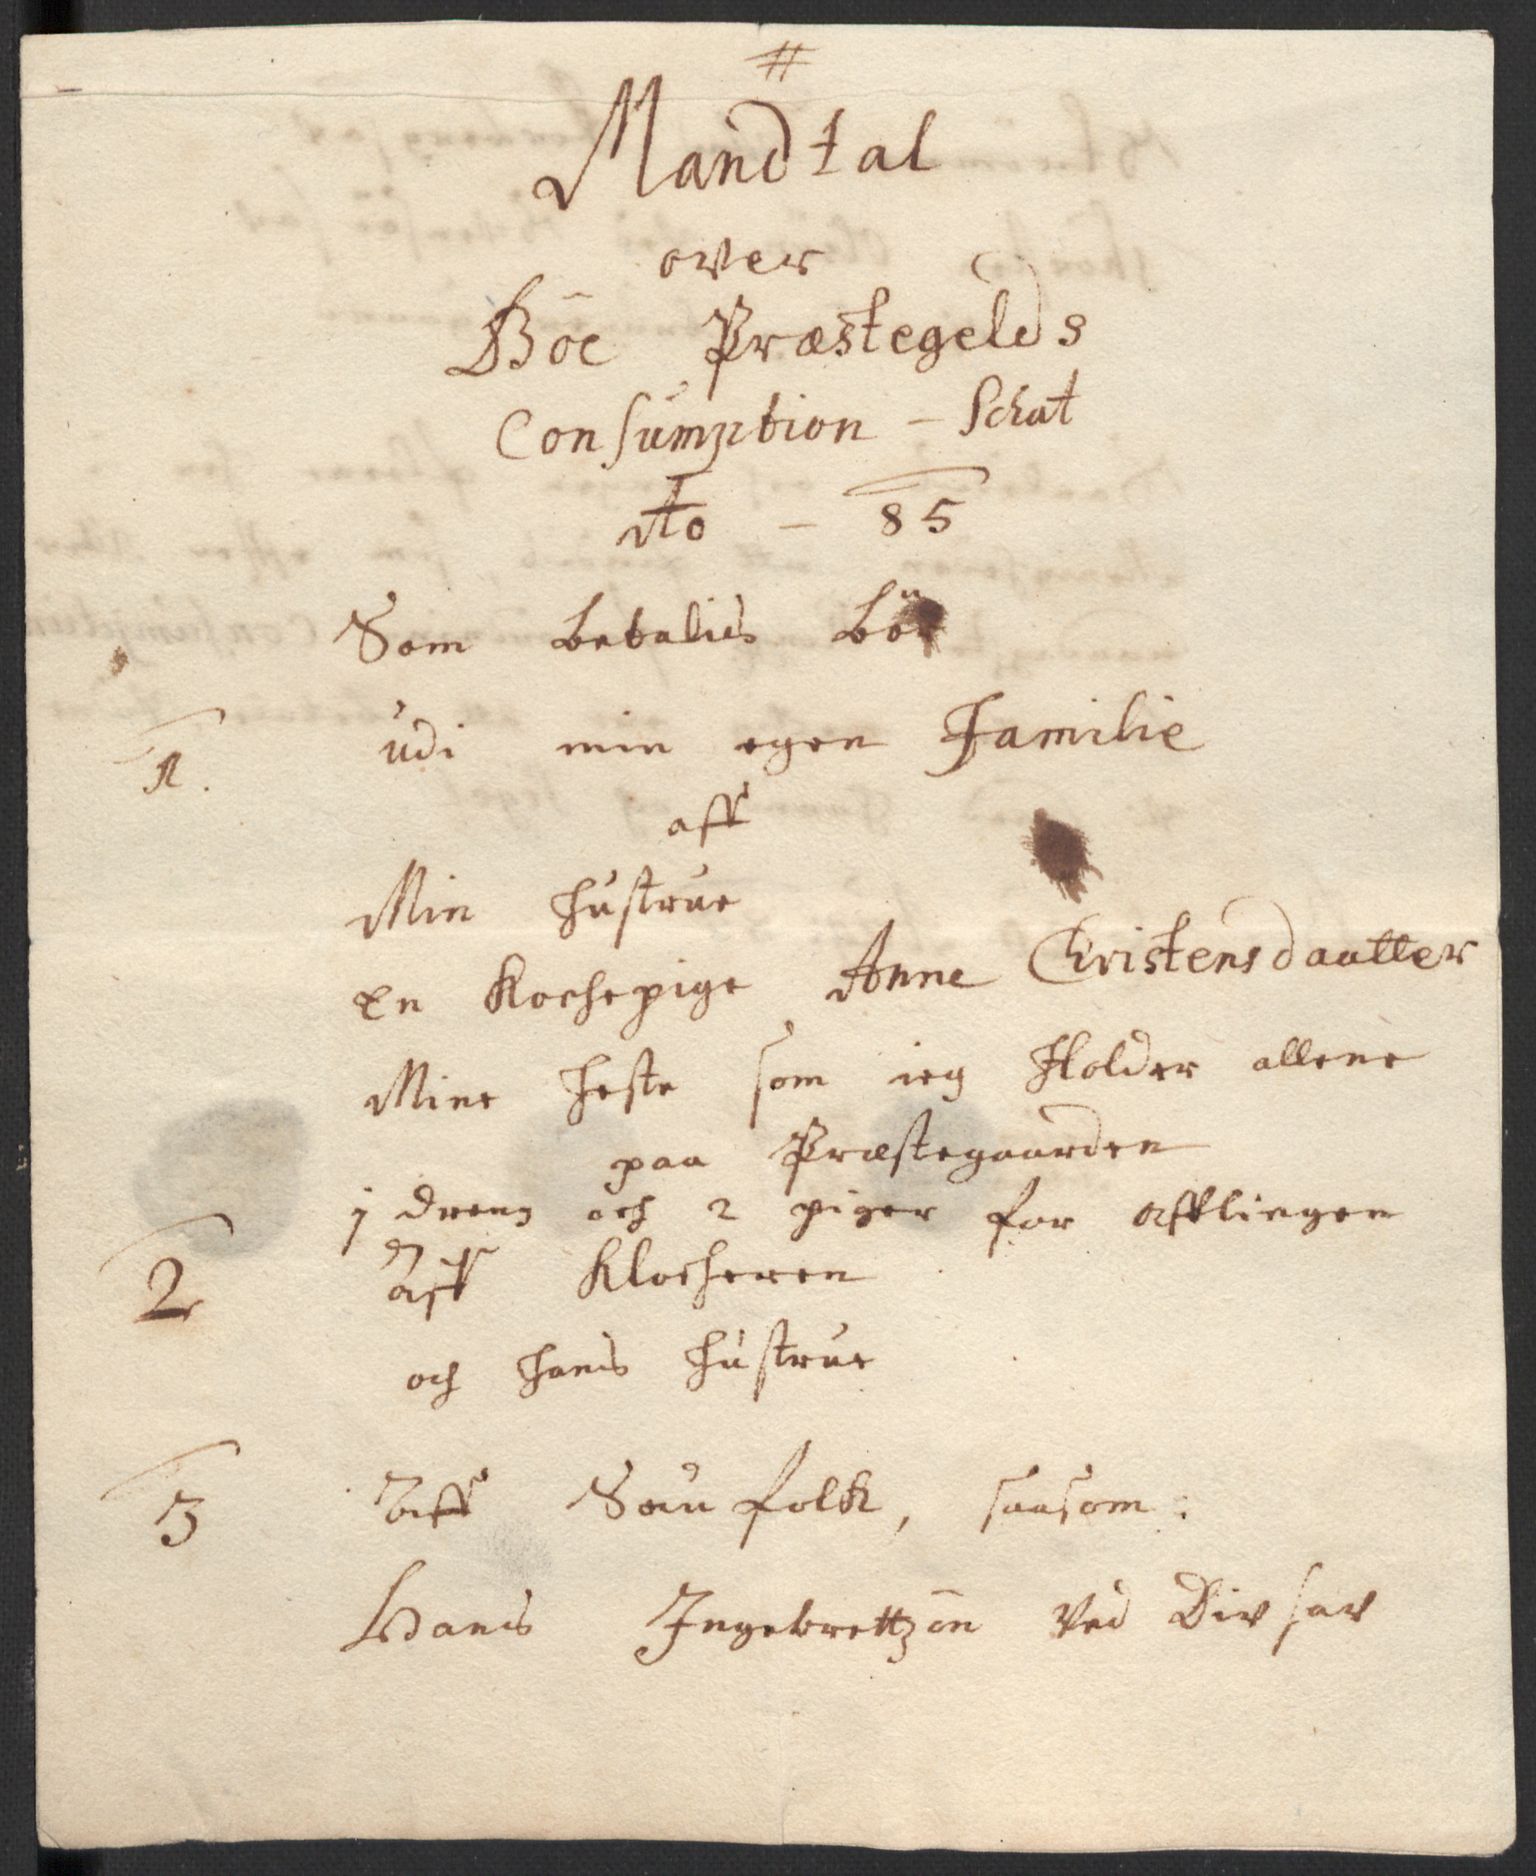 #
Mandtal
over
Böe Præstegelds
Consumption – Schat
Ao – 85
Som betalis bör
1. udi min egen Familie
aff
Min hustrue
En Kochepige Anne Christensdaatter
Mine heste som ieg Holder allene
paa Præstegaarden
j dreng och 2 piger for afflingen
2 Aff Klocheren
och hans hustrue
3 Aff folk, saasom:
Hans Ingebrettzön ved